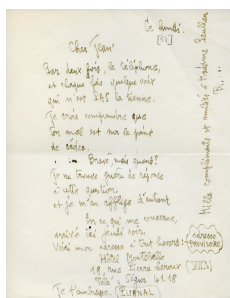 Ce lundi.
[51]
Cher Jean
Par deux fois, le téléphone,
et chaque fois quelque voix
qui n'est PAS la tienne.
Je crois comprendre que
ton mal est sur le point
de céder.
Bravo mais quand?
Je ne trouve guère de réponse
à cette question,
et je m'en afflige d'autant
En ce qui me concerne,
arrivé ici jeudi soir.
Voici mon adresse à tout hasard:
Hôtel Montalembert
18, rue Pierre Leroux (VII)
Télé: Ségur 41.18
Je t'embrasse.
adresse
PROVISOIRE
Mille compliments et amitiés à Madame